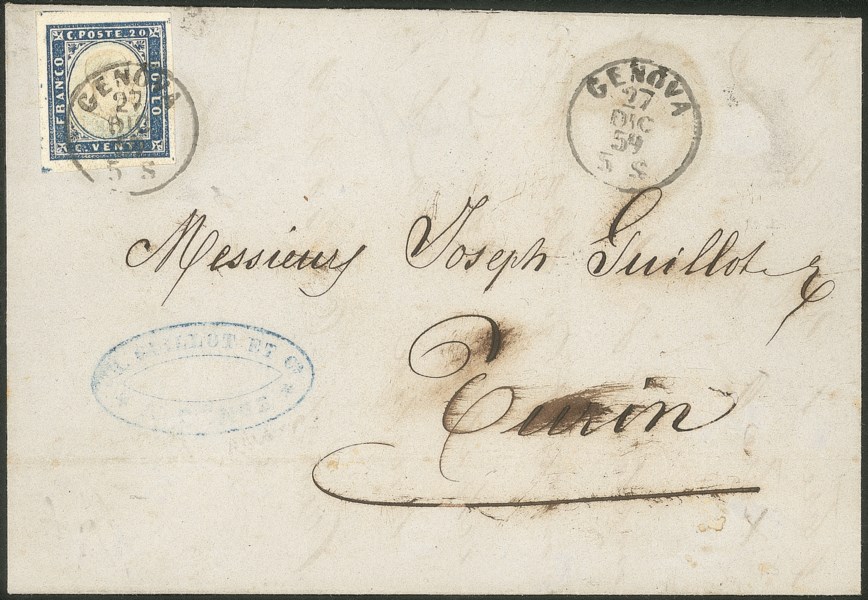 C. POSTE. 20
FRANCO
BOLLO
C. VENTI
GENOVA
27
5 S
GENOVA
27
DIC
59
5 S
Messieurs Joseph Guillot &
Turin
GUILLOT ET Cⁱᵉ